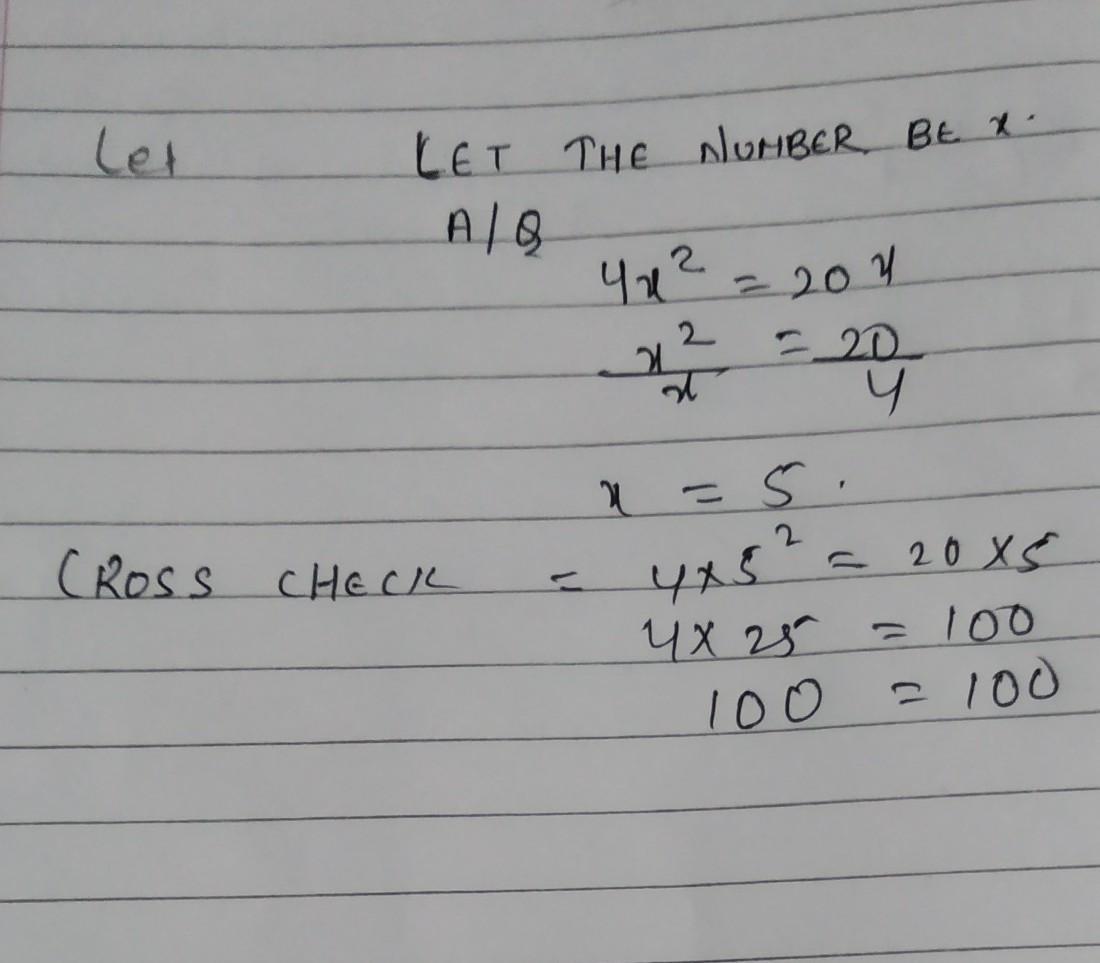 Let LET THE NUMBER BE x.
A/Q
4x² = 20x
x²/x = 20/4
x = 5.
CROSS CHECK = 4×5² = 20×5
4×25 = 100
100 = 100